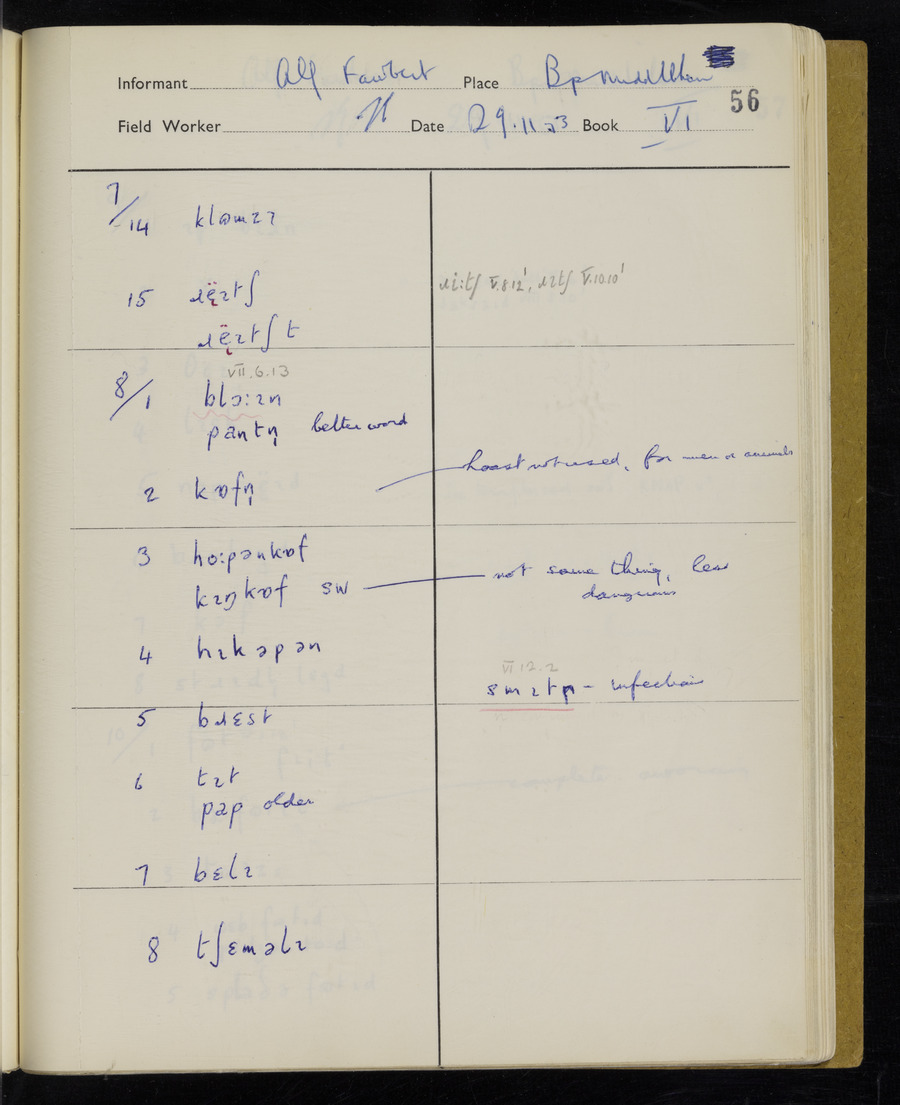 Informant Alf Fawbert Place Bp Middleham
56
Field Worker Date 29.11.53 Book VI
7/14 klɒmɪɪ
15 ɹëɪtʃ ɹi:tʃ V.8.12¹, ɹɪtʃ V.10.10¹
ɹëɪtʃt
VII.6.13
8/1 blɔ:ɪn
pantn̩ better word
hoast not used, for men or animals
2 kɒfn̩
3 ho:pənkɒf
not same thing, less
kɪŋkɒf sw
dangerous
4 hɪkəpən
VI 12.2
smɪtn̩ - infectious
5 bɹɛst
6 tɪt
pap older
7 bɛlɪ
8 tʃɛməlɪ